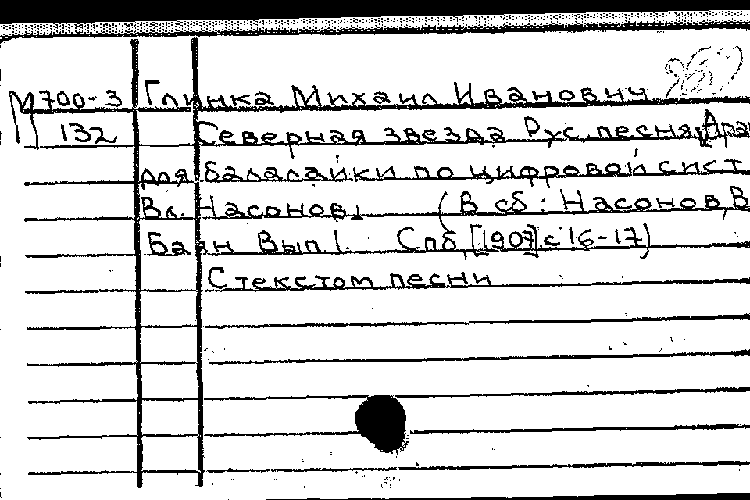 М700-3 Глинка, Михаил Иванович
132 Северная звезда Рус. песня. Ара
для балалайки по цифровой сист.
Вл. Насонов. (В сб: Насонов, В
Баян Вып 1. Спб, [1907] с 16-17)
С текстом песни